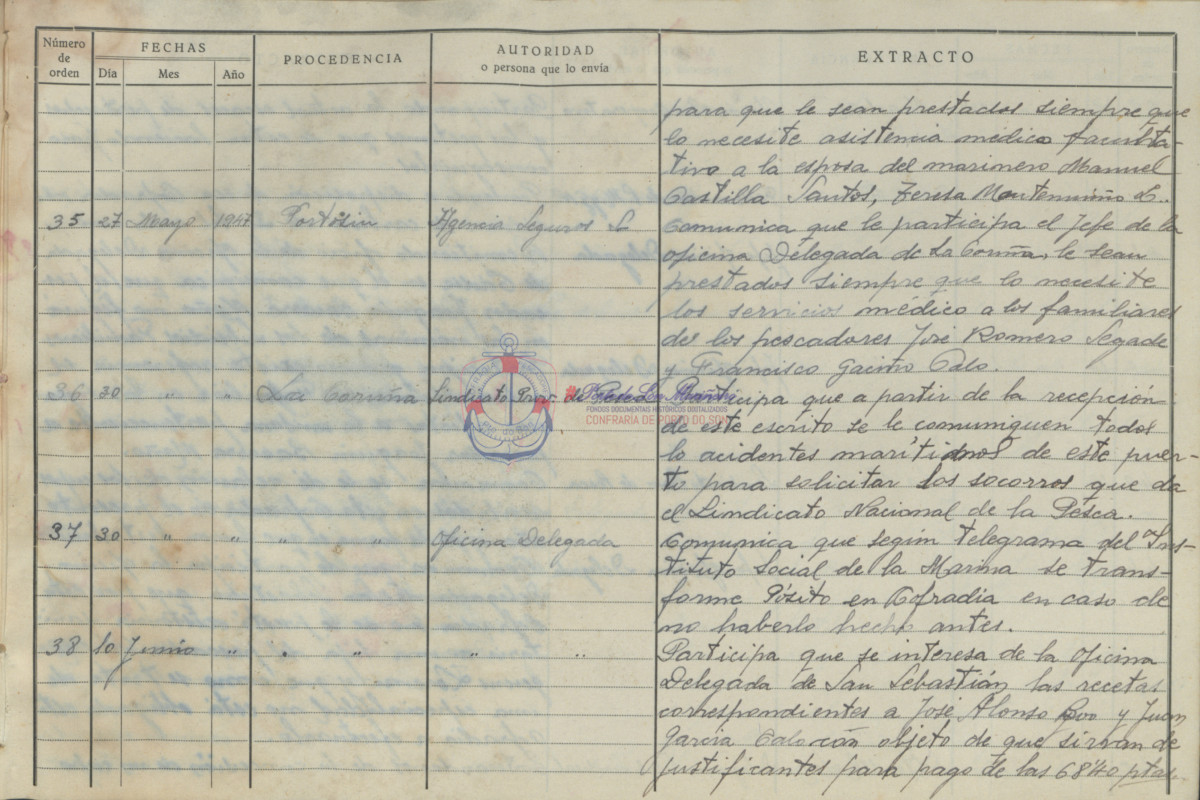 Número de orden
FECHAS
Día Mes Año
PROCEDENCIA
AUTORIDAD
o persona que lo envía
EXTRACTO
para que le sean prestados siempre que
lo necesite asistencia médico faculta-
tiva a la esposa del marinero Manuel
Castilla Santos, Teresa
35 27 Mayo 1947 Portosin Agencia Seguros S. Comunica que le participa el Jefe de la
oficina Delegada de La Coruña, le sean
prestados siempre que lo necesite
los servicios médico a los familiares
de los pescadores José Romero Segade
y Francisco Gaciño Calo.
36 30 " " La Coruña Sindicato Prov. de Pesca Participa que a partir de la recepción
de este escrito se le comuniquen todos
lo acidentes marítimos de este puer-
to para solicitar los socorros que da
el Sindicato Nacional de la Pesca.
37 30 " " " " Oficina Delegada Comunica que según telegrama del Ins-
tituto Social de la Marina se trans-
forme Pósito en Cofradia en caso de
no haberlo hecho antes.
38 10 Junio " " " " " Participa que se interesa de la oficina
Delegada de San Sebastián las recetas
correspondientes a José Alonso y Juan
Garcia Calo con objeto de que sirvan de
justificantes para pago de las 68'40 ptas.
FONDOS DOCUMENTAIS HISTÓRICOS DIGITALIZADOS
CONFRARIA DE PORTO DO SON